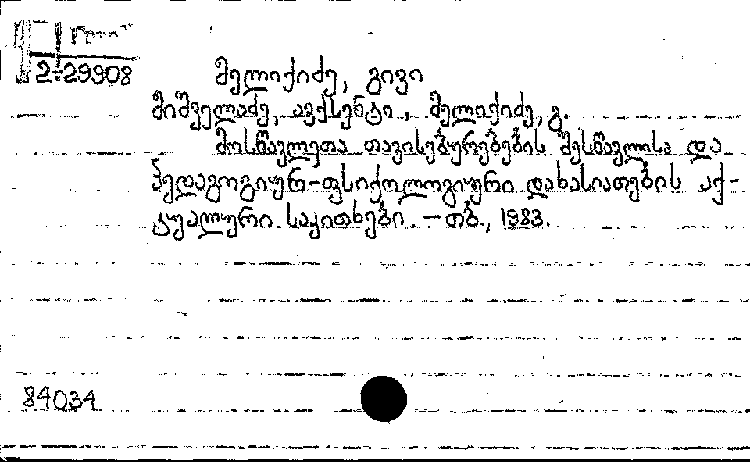 2-29908
მელიქიძე, გივი
მიშველაძე, ავქსენტი, მელიქიძე, გ.
მოსწავლეთა თავისებურებების შესწავლისა და
პედაგოგიურ-ფსიქოლოგიური დახასიათების აქ-
ტუალური საკითხები. - თბ., 1983.
84034